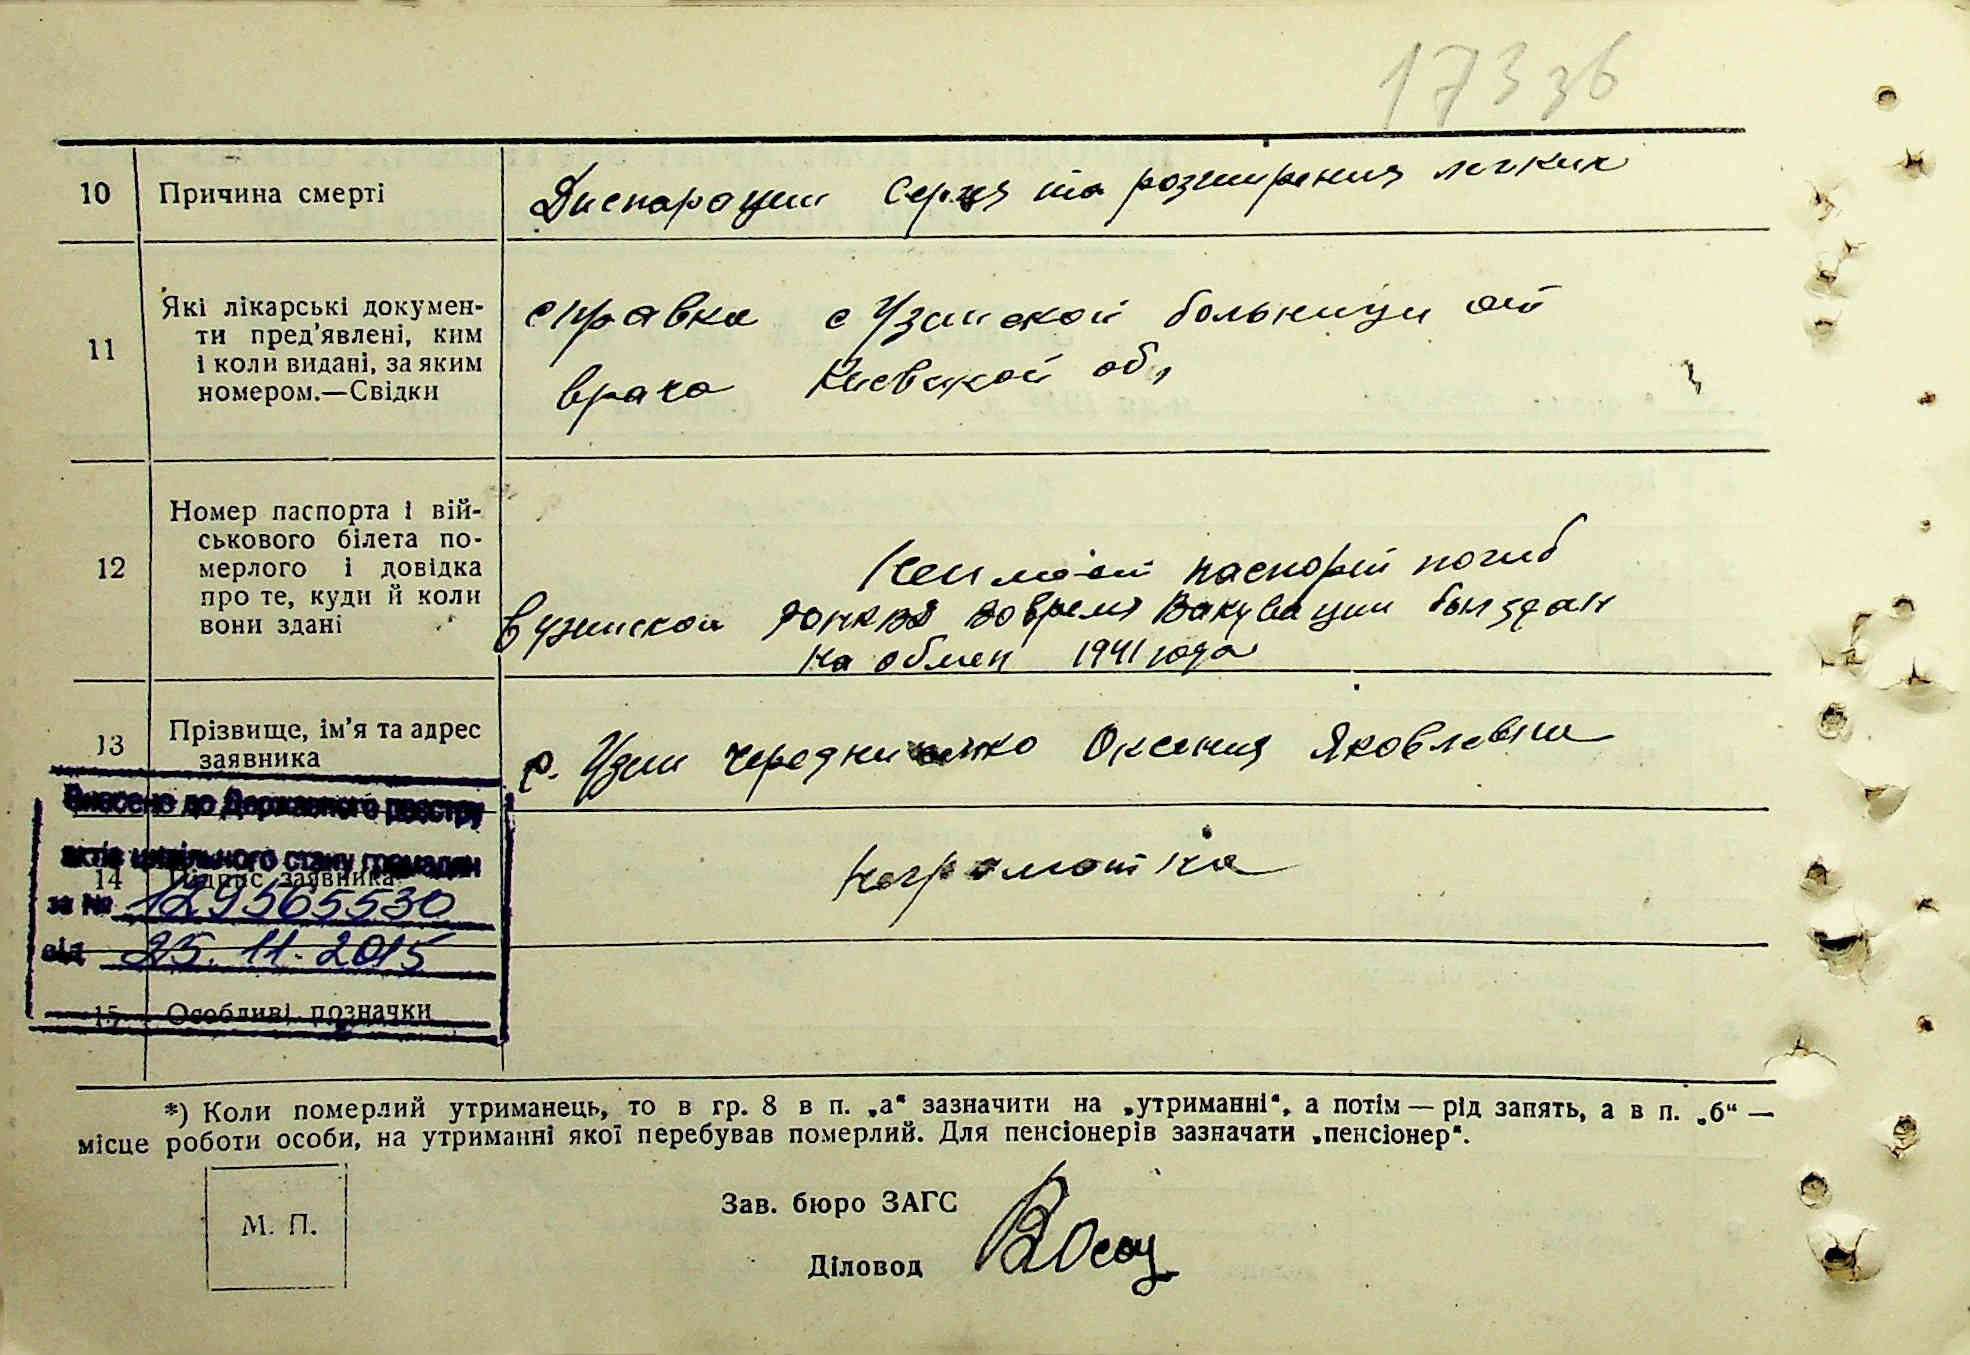 173 зб
10 Причина смерті
Диспарации Серця та розширения легких
11 Які лікарські докумен-
ти пред'явлені, ким
і коли видані, за яким
номером.—Свідки
справка с Узинской больници от
врача Киевской об,
12 Номер паспорта і вій-
ськового білета по-
мерлого і довідка
про те, куди й коли
вони здані
паспорт погиб
в узинской во время Вакувации был здан
на обмен 1941 года
13 Прізвище, ім'я та адрес
заявника
с. Узин Чередниченко Оксения Яковлевна
Внесено до Державного реєстру
актів цивільного стану громадян
14 Підпис заявника
Неграмотна
за № 129565530
від 25.11.2015
15 Особливі позначки
*) Коли померлий утриманець, то в гр. 8 в п. „а“ зазначити на „утриманні“, а потім — рід занять, а в п. „б“ —
місце роботи особи, на утриманні якої перебував померлий. Для пенсіонерів зазначати „пенсіонер“.
М. П.
Зав. бюро ЗАГС
Діловод